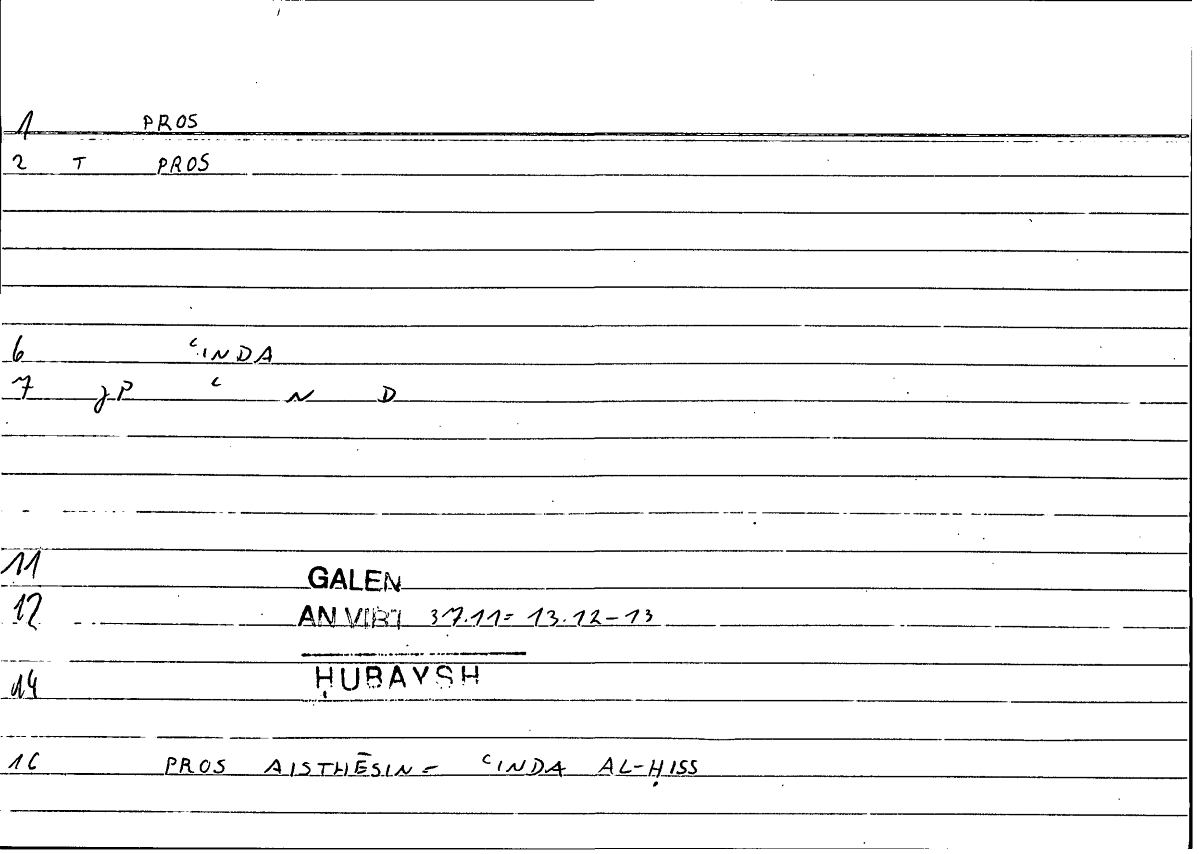 1 PROS
2 T PROS
6 ʿINDA
7 JP ʿ N D
11 GALEN
12 AN VIRT 37.11= 13.12-13
14 ḤUBAYSH
16 PROS AISTHĒSIN = ʿINDA AL-ḤISS